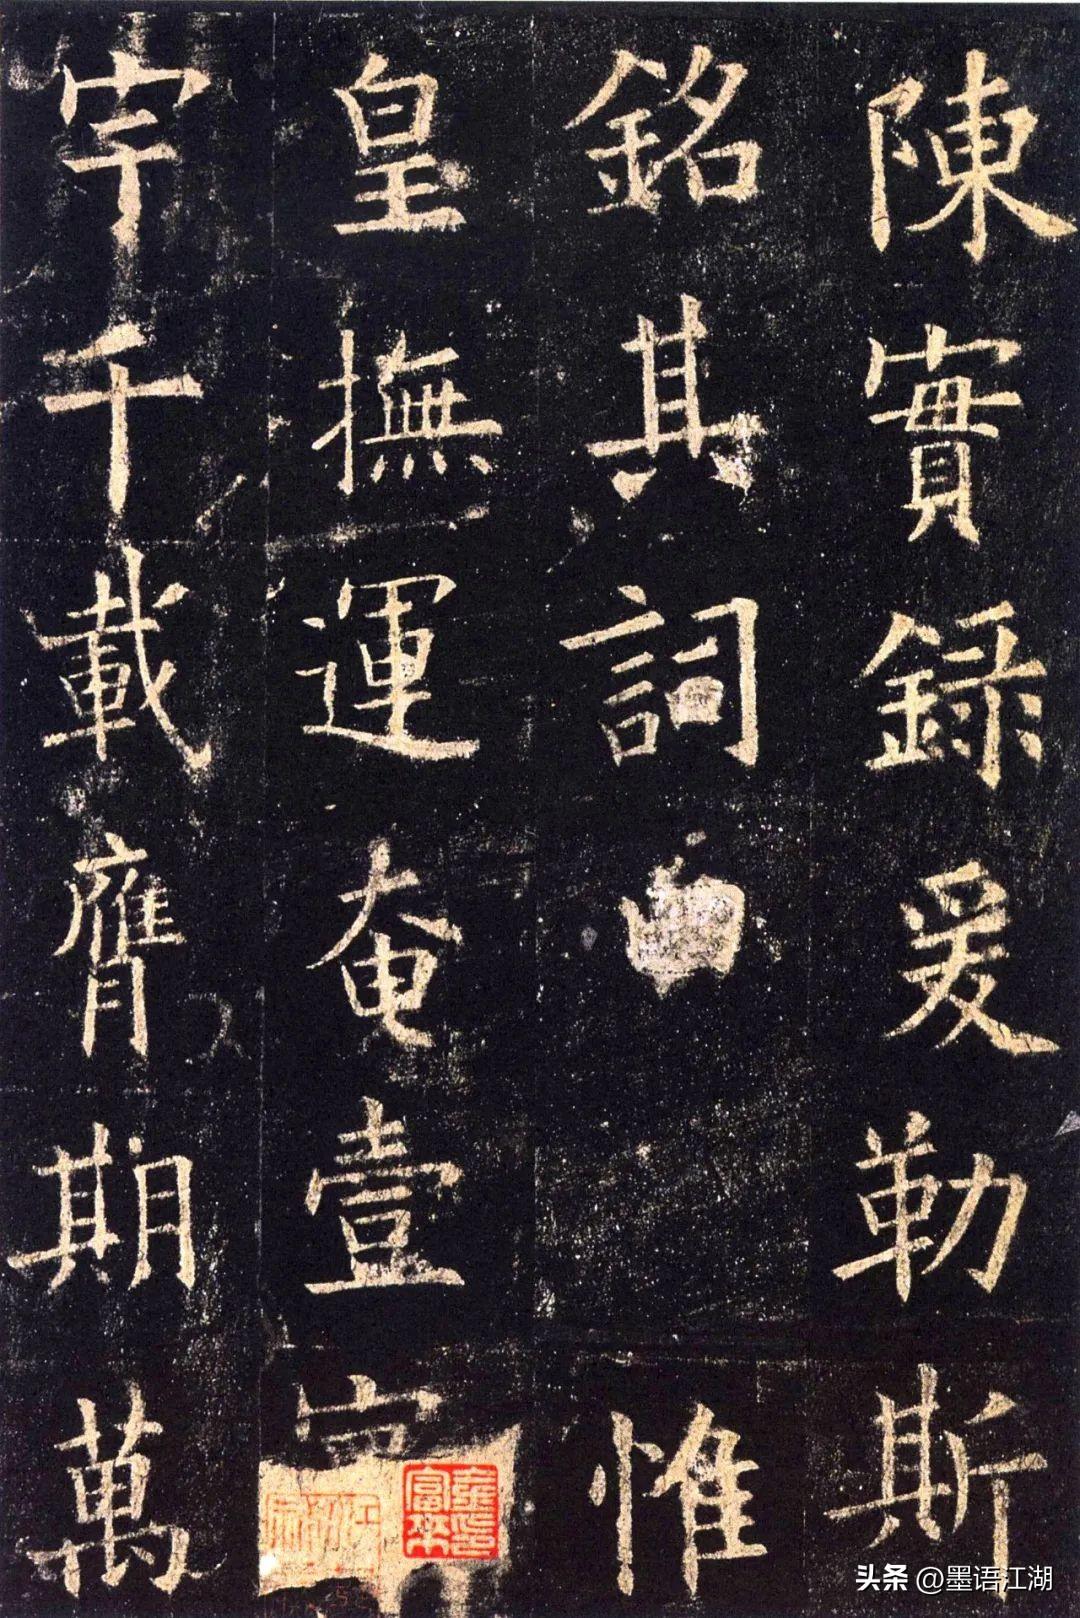 陳實録爰勒斯
銘其詞惟
皇撫運奄壹
宇千載膺期萬
头条 @墨语江湖